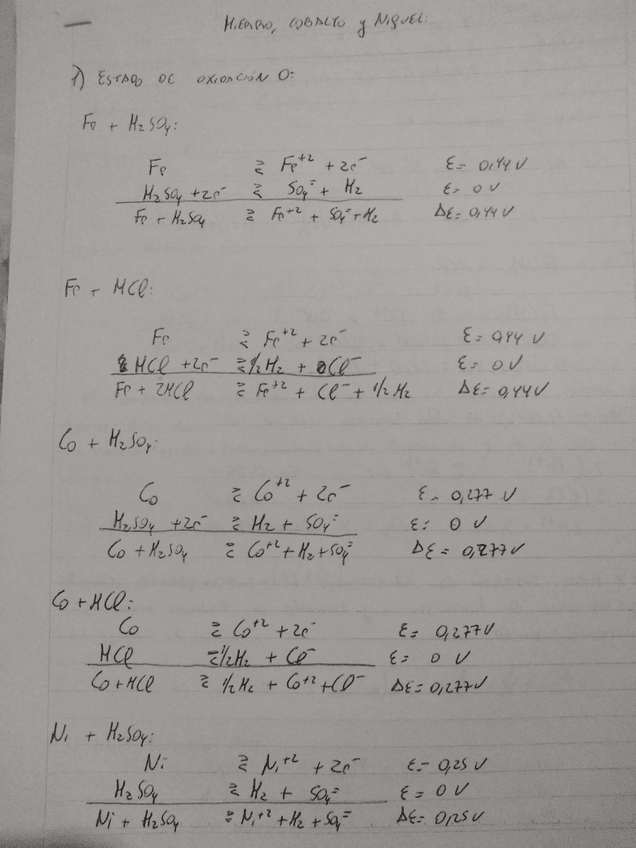 Hierro, Cobalto y Niquel:
1) Estado de oxidación 0:
Fe + H2SO4:
Fe ⇄ Fe+2 + 2e- ε= 0,44 V
H2SO4 + 2e- ⇄ SO4= + H2 ε= 0 V
Fe + H2SO4 ⇄ Fe+2 + SO4= + H2 Δε= 0,44 V
Fe + HCl:
Fe ⇄ Fe+2 + 2e- ε= 0,44 V
HCl + 2e- ⇄ 1/2 H2 + Cl- ε= 0 V
Fe + 2HCl ⇄ Fe+2 + Cl- + 1/2 H2 Δε= 0,44 V
Co + H2SO4:
Co ⇄ Co+2 + 2e- ε= 0,277 V
H2SO4 + 2e- ⇄ H2 + SO4= ε= 0 V
Co + H2SO4 ⇄ Co+2 + H2 + SO4= Δε= 0,277 V
Co + HCl:
Co ⇄ Co+2 + 2e- ε= 0,277 V
HCl ⇄ 1/2 H2 + Cl- ε= 0 V
Co + HCl ⇄ 1/2 H2 + Co+2 + Cl- Δε= 0,277 V
Ni + H2SO4:
Ni ⇄ Ni+2 + 2e- ε= 0,25 V
H2SO4 ⇄ H2 + SO4= ε= 0 V
Ni + H2SO4 ⇄ Ni+2 + H2 + SO4= Δε= 0,25 V